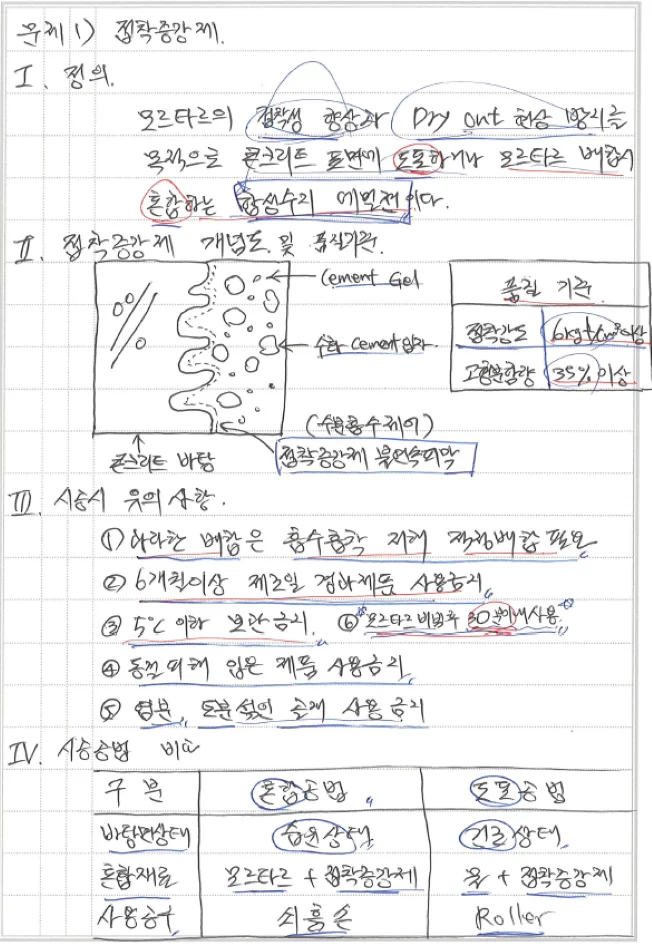 문제1) 접착증강제.
I. 정의.
모르타르의 접착성 향상과 Dry out 현상 방지를
목적으로 콘크리트 표면에 도포하거나 모르타르 배합시
혼합하는 합성수지 에멀젼이다.
II. 접착증강제 개념도 및 품질기준.
Cement Gel
수화 Cement입자.
(수분흡수제어)
접착증강제 불연속피막
콘크리트 바탕
품질 기준
접착강도 6kgf/cm² 이상
고형분함량 35% 이상
III. 시공시 유의사항.
① 과다한 배합은 흡수흡착 저해 적정배합 필요
② 6개월이상 제조일 경과제품 사용금지
③ 5℃ 이하 보관금지. ⑥ 모르타르 비빔후 30분이내사용
④ 동결피해 입은 제품 사용금지
⑤ 염분, 토분섞인 골재 사용금지
IV. 시공공법 비교
구 분 혼합공법 도포공법
바탕면상태 습윤상태 건조상태
혼합재료 모르타르 + 접착증강제 물 + 접착증강제
사용공구 쇠흙손 Roller